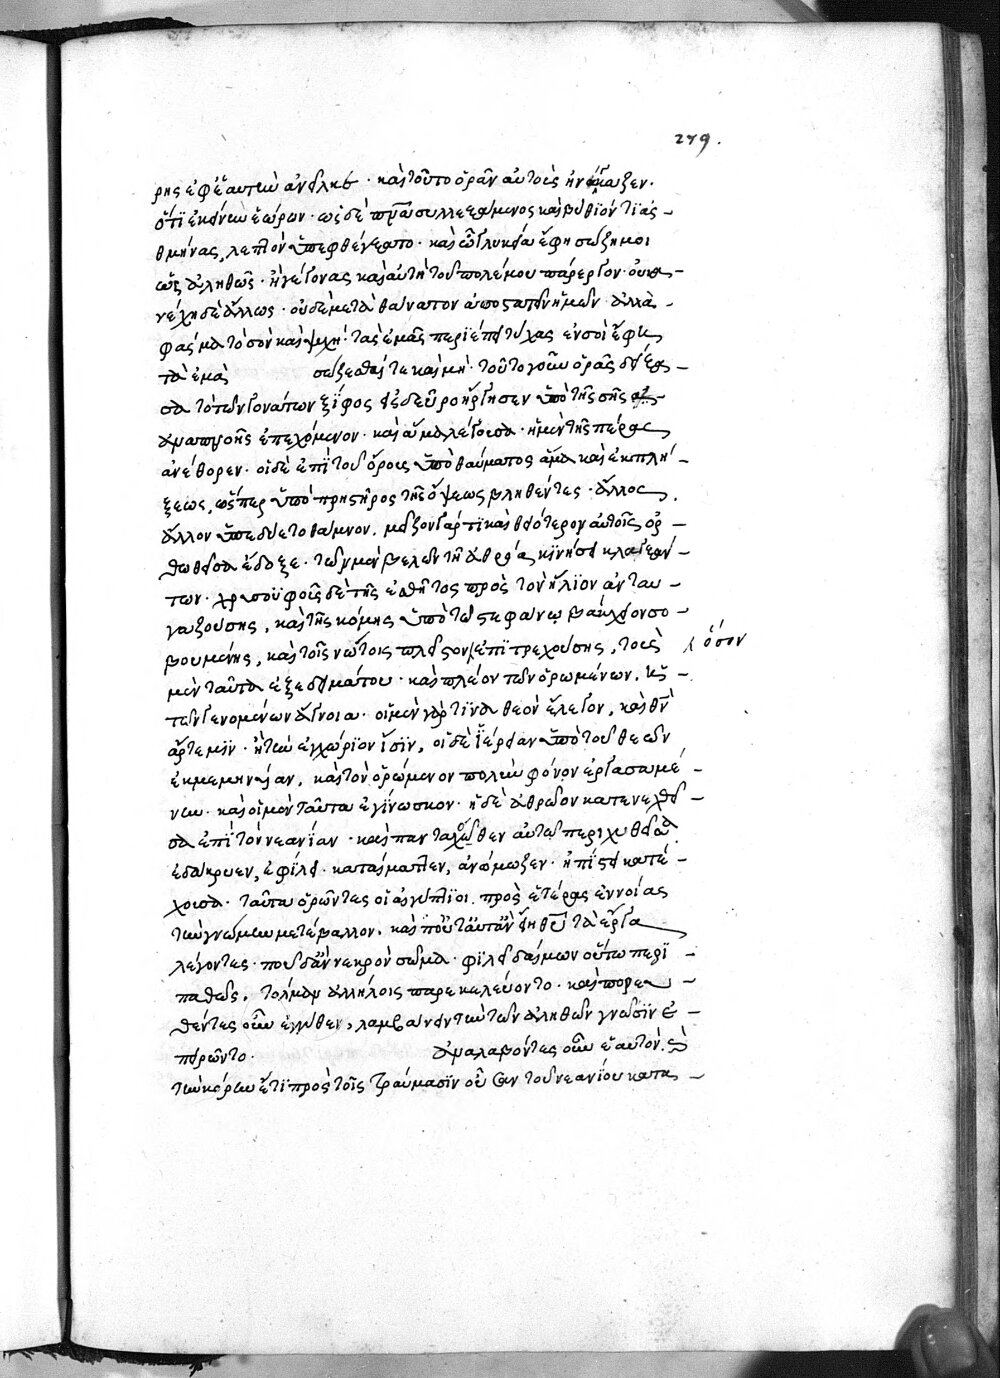 ρης ἐφ' ἑαυτὴν ἀνεῖλκε · καὶ τοῦτο ὁρᾶν αὐτοὺς ἠνάγκαζεν.
ὅτι ἐκείνην ἑώρων · ὡς δὲ πν̅α συλλεξάμενος καὶ βύθιόν τι ἀς-
θμήνας, λεπτὸν ὑπεφθέγξατο · καὶ ὦ γλυκεῖα ἔφη σώζῃ μοι
ὡς ἀληθῶς · ἢ γέγονας καὶ αὐτὴ τοῦ πολέμου πάρεργον · οὐκ ἀ-
νέχη δὲ ἄλλως · οὐδὲ μετὰ θάνατον ἀποστατεῖν ἡμῶν · ἀλλὰ
φάσμα τὸ σὸν καὶ ψυχὴ τὰς ἐμὰς περιέπει τύχας ἐν σοὶ ἔφη
τὰ ἐμὰ σώζεσθαί τε καὶ μή · τοῦτο γοῦν ὁρᾷς δείξα-
σα τὸ τῶν γονάτων ξίφος εἰς δεῦρο ἤργησεν ὑπὸ τῆς σῆς
ἀναπνοῆς ἐπεχόμενον · καὶ ἅμα λέγουσα · ἡ μὲν τῆς πέτρας
ἀνέθορεν · οἱ δὲ ἐπὶ τοῦ ὄρους ὑπὸ θαύματος ἅμα καὶ ἐκπλή-
ξεως, ὥσπερ ὑπὸ πρηστῆρος τῆς ὄψεως βληθέντες · ἄλλος
ἄλλον ὑπεδύετο θάμνον. μεῖζον γάρ τι καὶ θειότερον αὐτοῖς ὀρ-
θωθεῖσα ἔδοξε · τῶν μὲν βελῶν τῇ ἀθρόᾳ κινήσει κλαγξάν-
των · χρυσοϋφοῦς δὲ τῆς ἐσθῆτος πρὸς τὸν ἥλιον ἀνταυ-
γαζούσης, καὶ τῆς κόμης ὑπὸ τῷ στεφάνῳ βακχεῖον σο-
βουμένης, καὶ τοῖς νώτοις πλεῖστον ἐπιτρεχούσης, τοὺς ὅσον
μὲν ταῦτα ἐξεδειμάτου · καὶ πλέον τῶν ὁρωμένων, ἡ
τῶν γενομένων ἄγνοια · οἱ μὲν γάρ τινα θεὸν ἔλεγον, καὶ θν̅
ἄρτεμιν · ἢ τὴν ἐγχώριον ἶσιν, οἱ δὲ ἱέρειαν ὑπὸ του θεῶν
ἐκμεμηνυῖαν, καὶ τὸν ὁρώμενον πολὺν φόνον ἐργασαμέ-
νην · καὶ οἱ μὲν ταῦτα ἐγίνωσκον · ἡ δὲ ἀθρόον κατενεχθεῖ-
σα ἐπὶ τὸν νεανίαν · καὶ πανταχόθεν αὐτῷ περιχυθεῖσα
ἐδάκρυεν, ἐφίλει · κατέματτεν, ἀνώμωξεν · ἠπίστει κατέ-
χουσα · ταῦτα ὁρῶντες οἱ αἰγύπτιοι πρὸς ἑτέρας ἐννοίας
τὴν γνώμην μετέβαλλον. καὶ ποῦ ταῦτ' ἂν εἴη θυ̅ τὰ ἔργα
λέγοντες · ποῦ δ' ἂν νεκρὸν σῶμα · φιλεῖ δαίμων οὕτω περι-
παθῶς. τολμᾶν ἀλλήλοις παρεκελεύοντο · καὶ πορευ-
θέντες οὖν ἐγγύθεν, λαμβάνειν τὴν τῶν ἀληθῶν γνῶσιν ἐ-
πειρῶντο. ἀναλαβόντες οὖν ἑαυτοὺς
τὴν κόρην ἔτι πρὸς τοῖς τραύμασιν οὖσαν τοῦ νεανίου κατα-